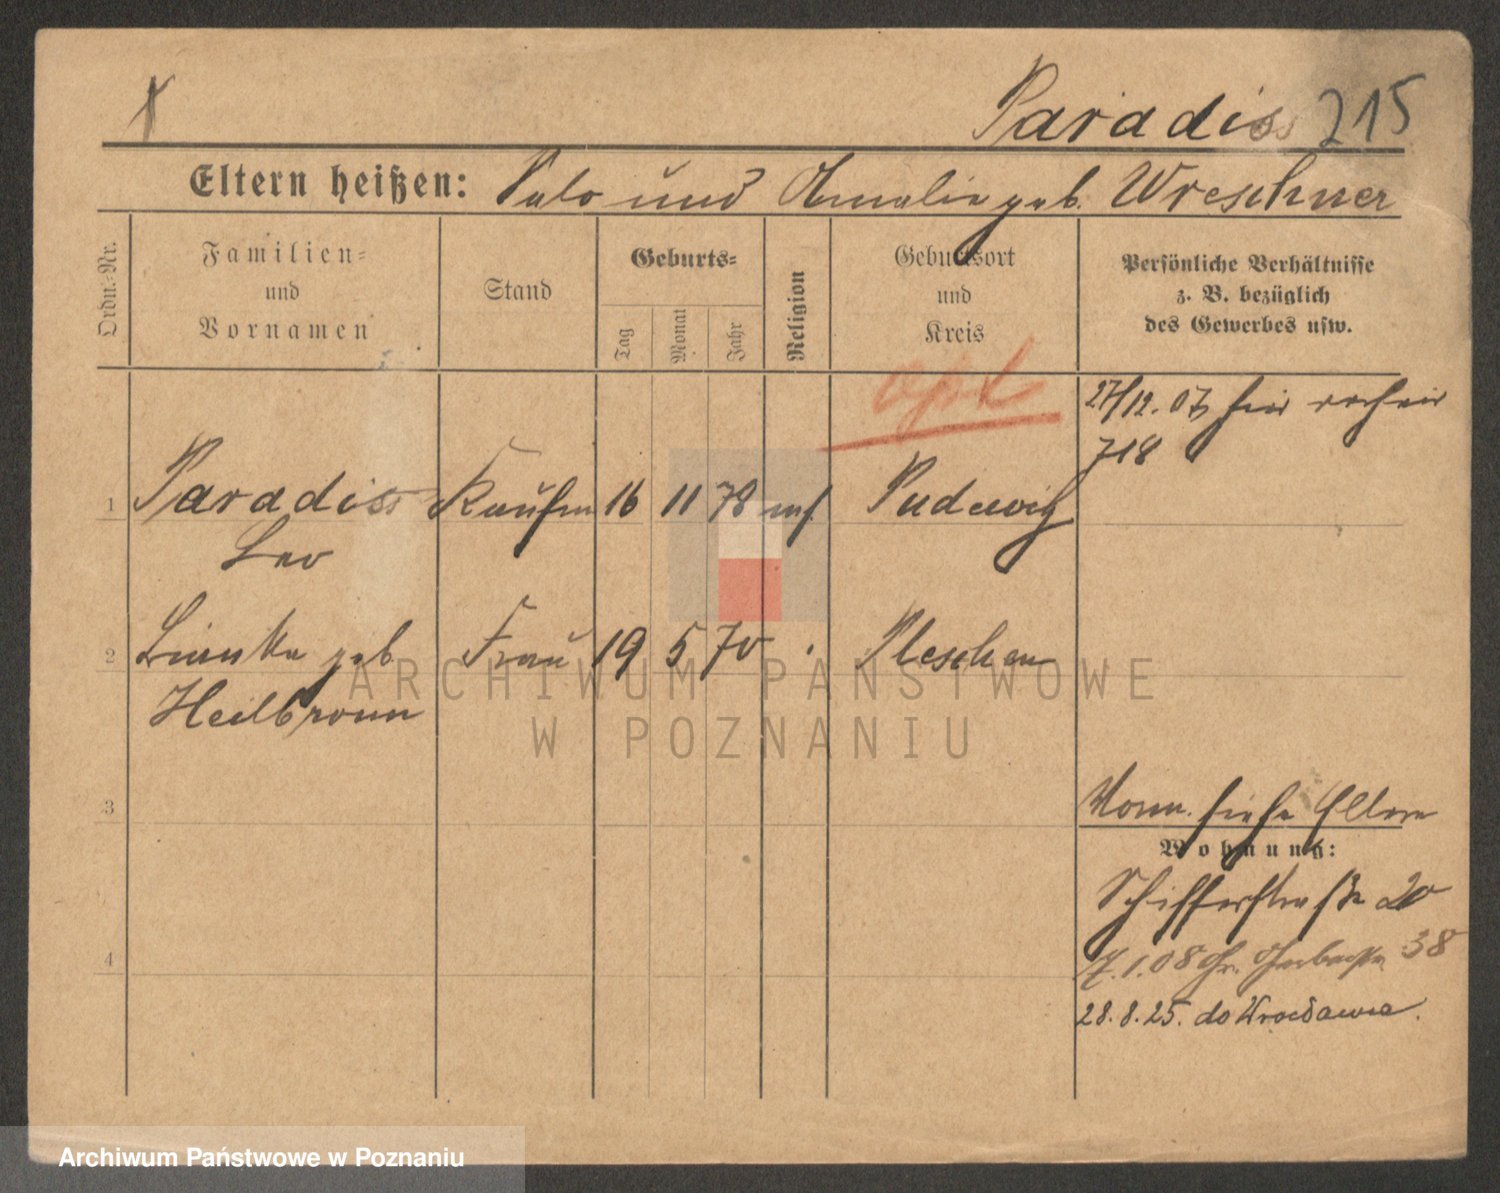 Paradiss 215
Eltern heißen: Salo und Amalie geb. Wreschner
Ordn.-Nr.
Familien-
und
Vornamen
Stand
Geburts-
Tag
Monat
Jahr
Religion
Geburtsort
und
Kreis
Persönliche Verhältnisse
z. B. bezüglich
des Gewerbes usw.
opt
27/12. 07
718
1 Paradiss Kaufm 16 11 78 Pudewitz
Leo
2 geb Frau 19 5 70 Pleschen
Heilbronn
3
siehe Eltern
Wohnung:
Schifferstraße 20
4
7.1.08 Gr. 38
28.8.25. do Wrocławia.
ARCHIWUM PAŃSTWOWE
W POZNANIU
Archiwum Państwowe w Poznaniu